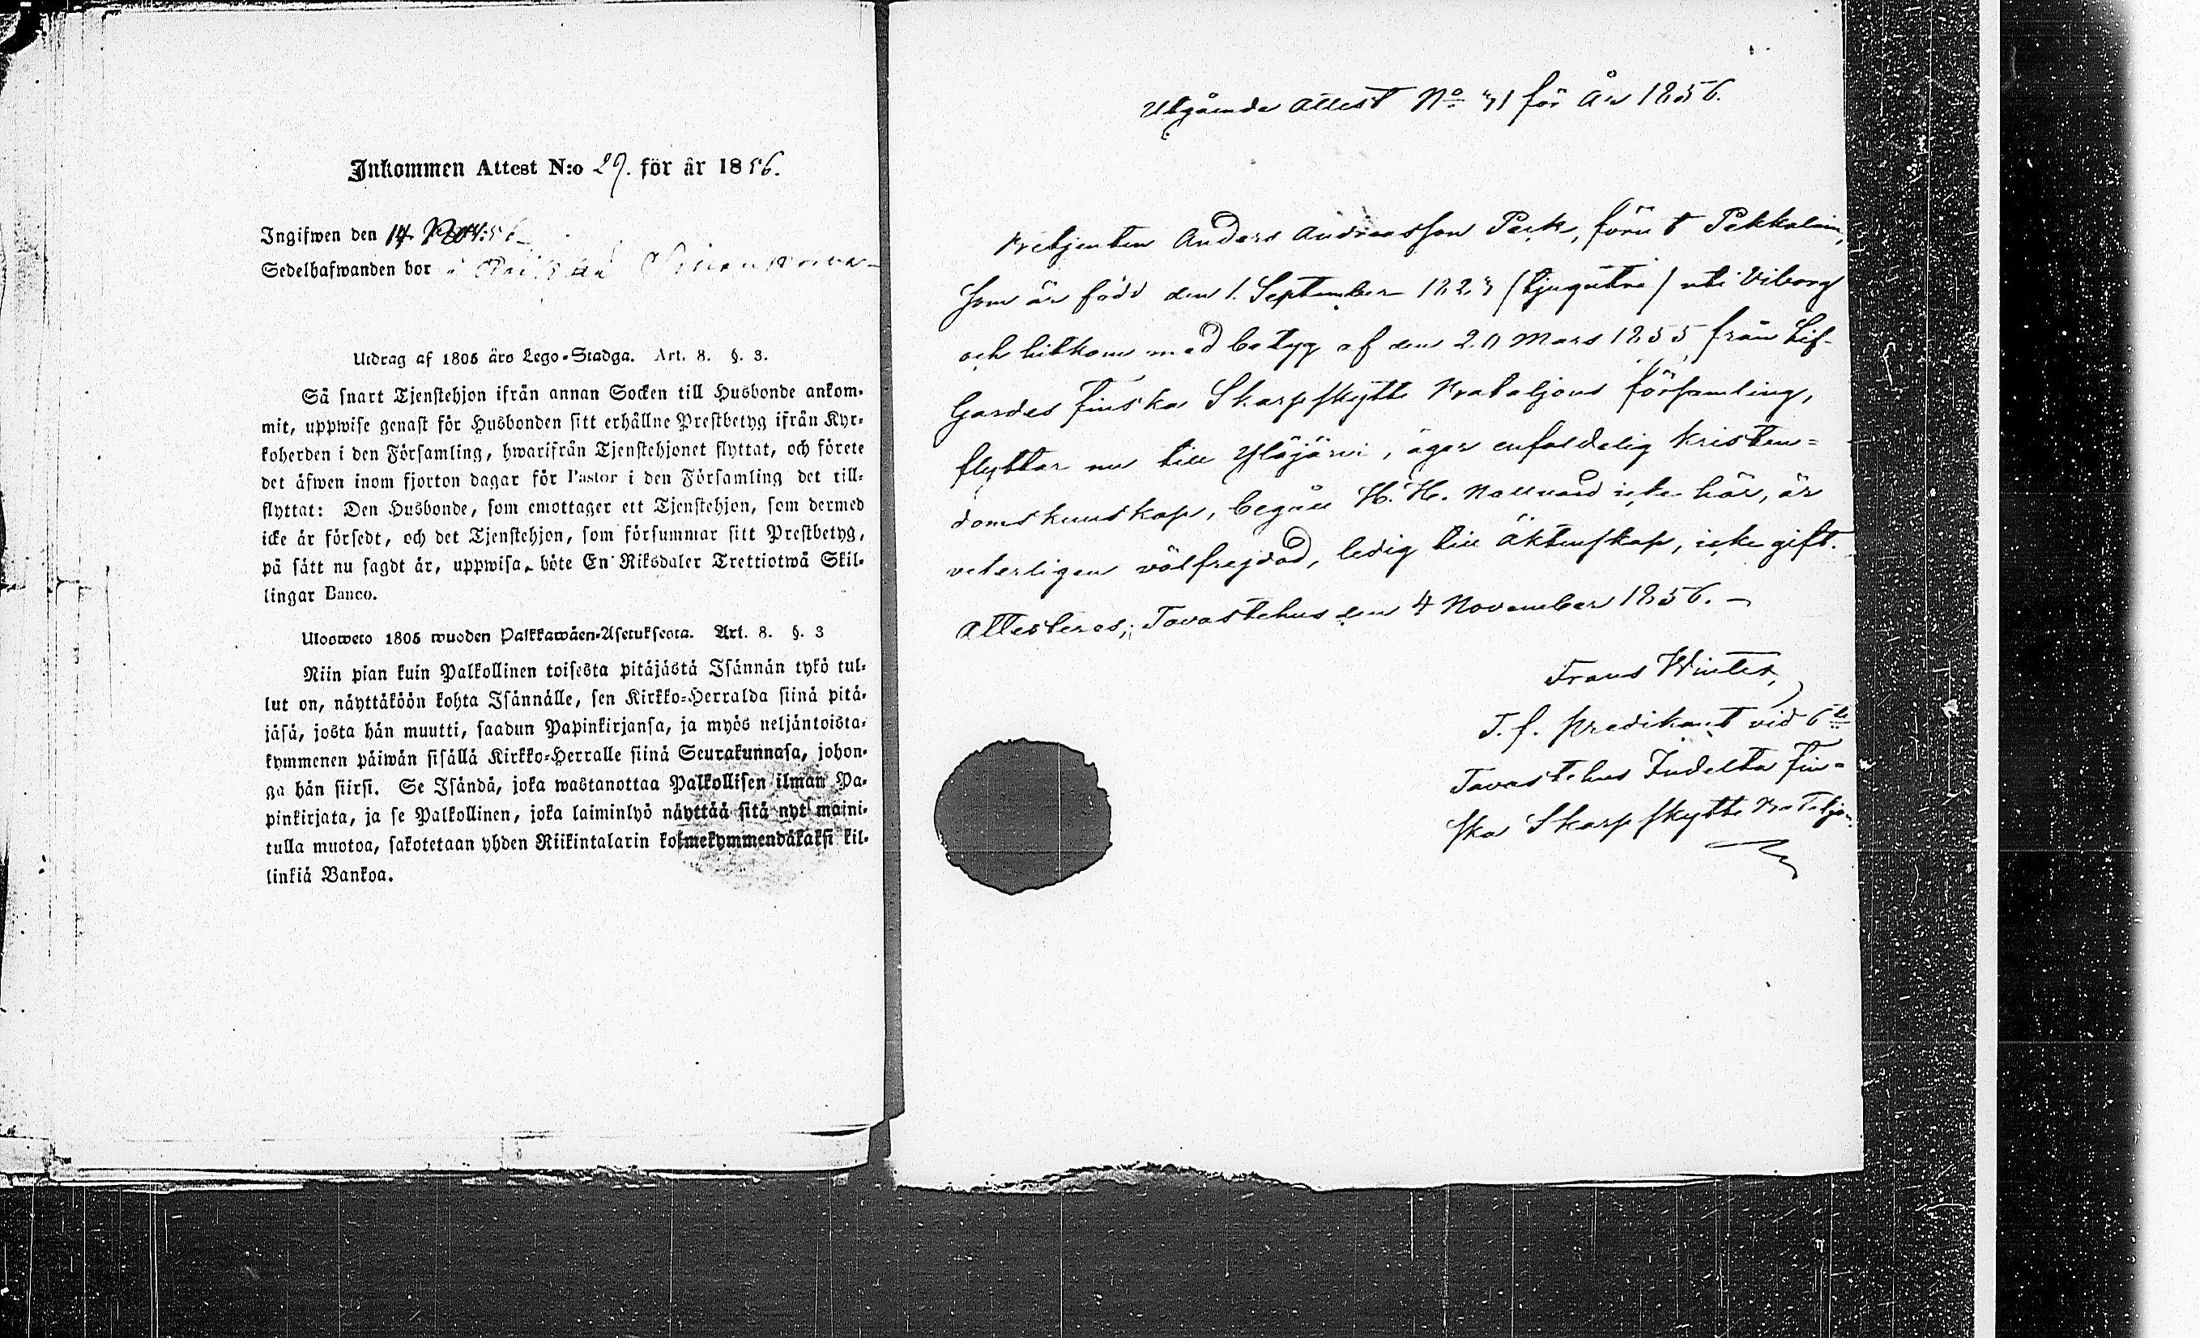 Inkommen Attest N:o 29. för år 1856.
Ingifwen den 14 Nov. 56
Sedelhafwanden bor i
Utdrag af 1805 års Lego-Stadga. Art. 8. §. 3.
Så snart Tjenstehjon ifrån annan Socken till Husbonde ankom-
mit, uppwise genast för Husbonden sitt erhållne Prestbetyg ifrån Kyr-
koherden i den Församling, hwarifrån Tjenstehjonet flyttat, och förete
det äfwen inom fjorton dagar för Pastor i den Församling det till-
flyttat: Den Husbonde, som emottager ett Tjenstehjon, som dermed
icke är försedt, och det Tjenstehjon, som försummar sitt Prestbetyg,
på sätt nu sagdt är, uppwisa, böte En Riksdaler Trettiotwå Skil-
lingar Banco.
Ulosweto 1805 wuoden Palkkawäen-Asetuksesta. Art. 8. §. 3
Niin pian kuin Palkollinen toisesta pitäjästä Isännän tykö tul-
lut on, näyttäköön kohta Isännälle, sen Kirkko-Herralda siinä pitä-
jäsä, josta hän muutti, saadun Papinkirjansa, ja myös neljäntoista-
kymmenen päiwän sisällä Kirkko-Herralle siinä Seurakunnasa, johon-
ga hän siirsi. Se Isändä, joka wastanottaa Palkollisen ilman Pa-
pinkirjata, ja se Palkollinen, joka laiminlyö näyttää sitä nyt maini-
tulla muotoa, sakotetaan yhden Riikintalarin kolmekymmendäkaksi kil-
linkiä Bankoa.
Utgående Attest No 31 för År 1856.
Betjenten Anders Andreasson Perk, förut Pekkalain,
som är född den 1. September 1823 (tjugutre) uti Viborg
och hitkom med betyg af den 20 Mars 1855 från Lif-
Gardes Finska Skarpskytte Bataljons församling,
flyttar nu till Ylöjärvi, äger enfaldelig kristen=
domskunskap, begått H. H. Nattvard icke här, är
veterligen välfrejdad, ledig till äktenskap, icke gift.
Attesteras; Tavastehus den 4 November 1856. –
Frans Winter,
T. f. Predikant vid 6te
Tavastehus Indelta Fin-
ska Skarpskytte Bataljon.